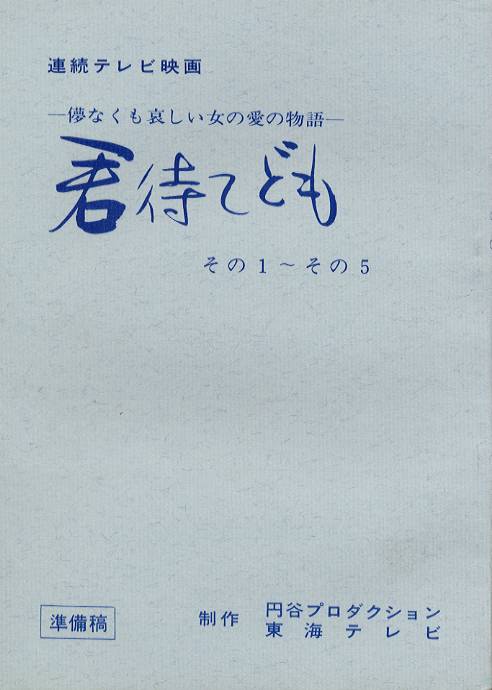 連続テレビ映画
―儚なくも哀しい女の愛の物語―
君待てども
その1～その5
準備稿
制作 円谷プロダクション
東海テレビ